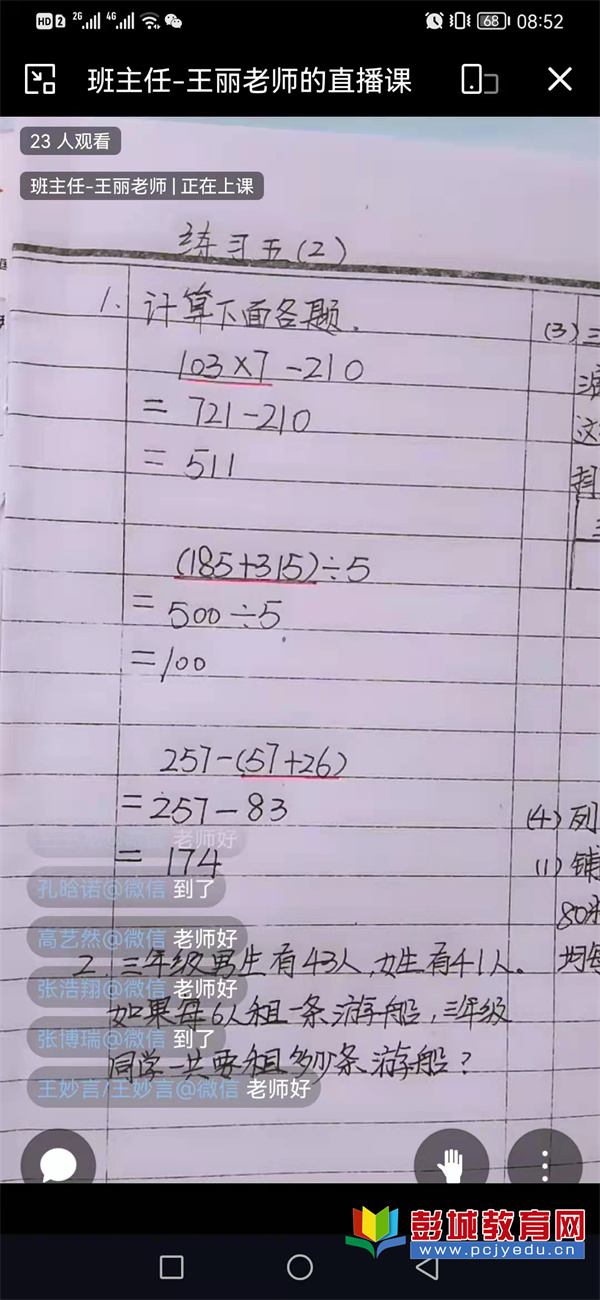 HD 2 2G 4G 68 08:52
班主任-王丽老师的直播课
23 人观看
班主任-王丽老师 | 正在上课
练习五(2)
1. 计算下面各题.
103×7-210
= 721-210
= 511
(185+315)÷5
= 500÷5
=100
257-(57+26)
=257-83
= 174
2. 三年级男生有43人,女生有41人。
如果每6人租一条游船,三年级
同学一共要租多少条游船?
(3) 三
这
(4) 列
(1) 铺
80米
均每
老师好
孔晗诺@微信 到了
高艺然@微信 老师好
张浩翔@微信 老师好
张博瑞@微信 到了
王妙言/王妙言@微信 老师好
彭城教育网
www.pcjyedu.cn